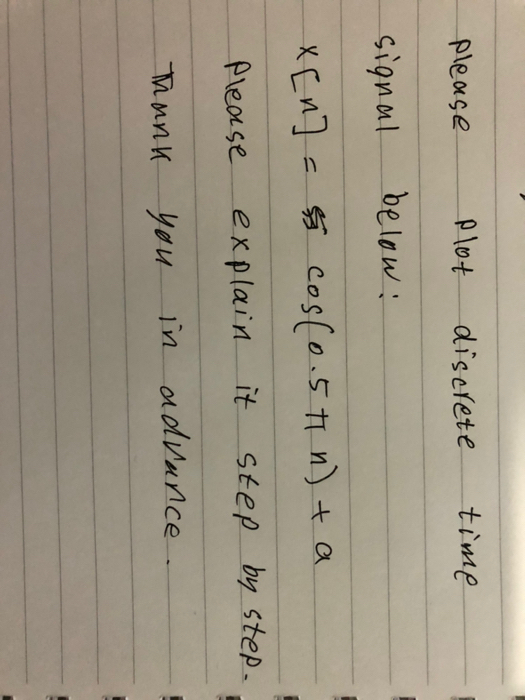 please plot discrete time
signal below:
x[n] = 5 cos(0.5 π n) + a
please explain it step by step.
Thank you in advance.